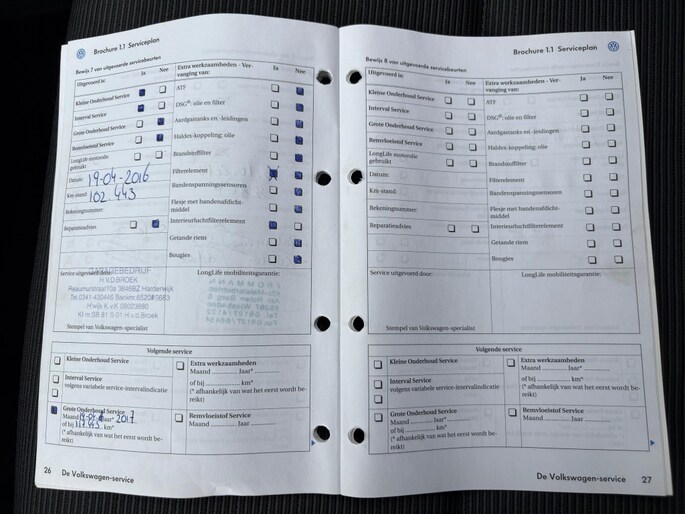 Brochure 1.1 Serviceplan
Bewijs 7 van uitgevoerde servicebeurten
Uitgevoerd is:
Ja Nee
Kleine Onderhoud Service
Interval Service
Grote Onderhoud Service
Remvloeistof Service
LongLife motorolie gebruikt
Datum: 19-04-2016
Km-stand: 102.443
Rekeningnummer:
Reparatieadvies
Extra werkzaamheden - Ver-
vanging van:
Ja Nee
ATF
DSG®: olie en filter
Aardgastanks en -leidingen
Haldex-koppeling: olie
Brandstoffilter
Filterelement
Bandenspanningssensoren
Flesje met bandenafdicht-
middel
Interieurluchtfilterelement
Getande riem
Bougies
Service uitgevoerd door:
GARAGEBEDRIJF
H.V.D.BROEK
Reaumurstraat10a 3846BZ Harderwijk
Stempel van Volkswagen-specialist
LongLife mobiliteitsgarantie:
Volgende service
Kleine Onderhoud Service
Interval Service
volgens variabele service-intervalindicatie
Grote Onderhoud Service
Maand Jaar* 2017
of bij km*
(* afhankelijk van wat het eerst wordt be-
reikt)
Extra werkzaamheden
Maand ............ Jaar* ............
of bij ............ km*
(* afhankelijk van wat het eerst wordt be-
reikt)
Remvloeistof Service
Maand ............ Jaar ............
26 De Volkswagen-service
Brochure 1.1 Serviceplan
Bewijs 8 van uitgevoerde servicebeurten
Uitgevoerd is:
Ja Nee
Kleine Onderhoud Service
Interval Service
Grote Onderhoud Service
Remvloeistof Service
LongLife motorolie
gebruikt
Datum:
Km-stand:
Rekeningnummer:
Reparatieadvies
Extra werkzaamheden - Ver-
vanging van:
Ja Nee
ATF
DSG®: olie en filter
Aardgastanks en -leidingen
Haldex-koppeling: olie
Brandstoffilter
Filterelement
Bandenspanningssensoren
Flesje met bandenafdicht-
middel
Interieurluchtfilterelement
Getande riem
Bougies
Service uitgevoerd door:
Stempel van Volkswagen-specialist
LongLife mobiliteitsgarantie:
Volgende service
Kleine Onderhoud Service
Interval Service
volgens variabele service-intervalindicatie
Grote Onderhoud Service
Maand ............ Jaar* ............
of bij ............ km*
(* afhankelijk van wat het eerst wordt be-
reikt)
Extra werkzaamheden
Maand ............ Jaar* ............
of bij ............ km*
(* afhankelijk van wat het eerst wordt be-
reikt)
Remvloeistof Service
Maand ............ Jaar ............
De Volkswagen-service 27